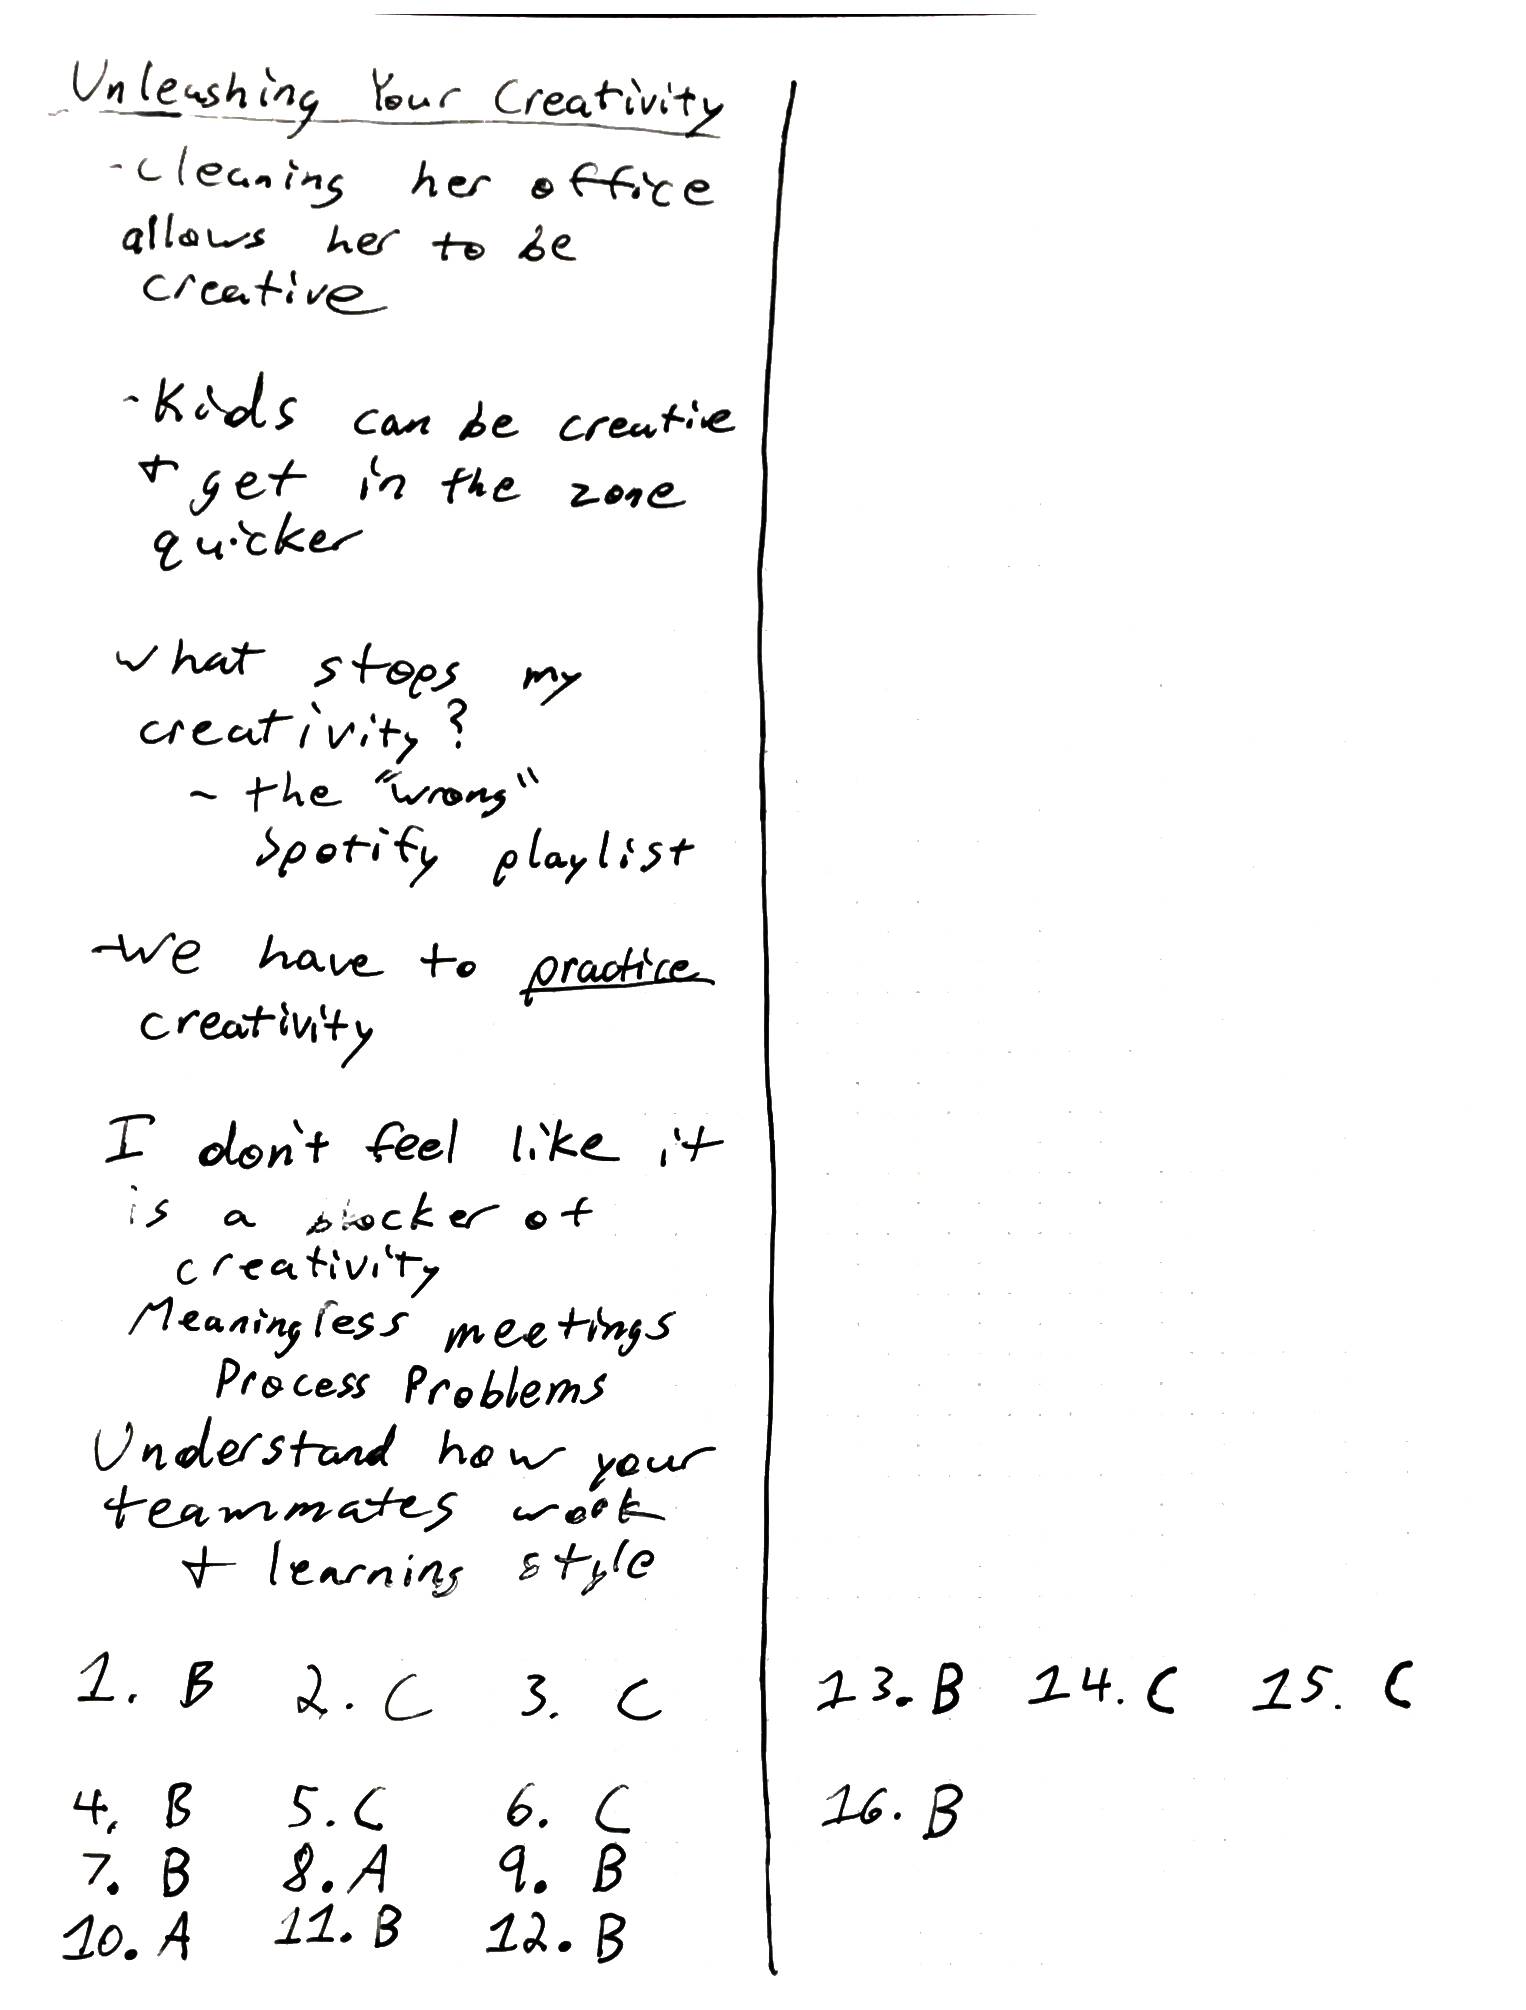 Unleashing Your Creativity
-Cleaning her office
allows her to be
creative
-Kids can be creative
+ get in the zone
quicker
what stops my
creativity?
- the "wrong"
Spotify playlist
-We have to practice
creativity
I don't feel like it
is a blocker of
creativity
Meaningless meetings
Process Problems
Understand how your
teammates work
+ learning style
1. B 2. C 3. C
4. B 5. C 6. C
7. B 8. A 9. B
10. A 11. B 12. B
13. B 14. C 15. C
16. B